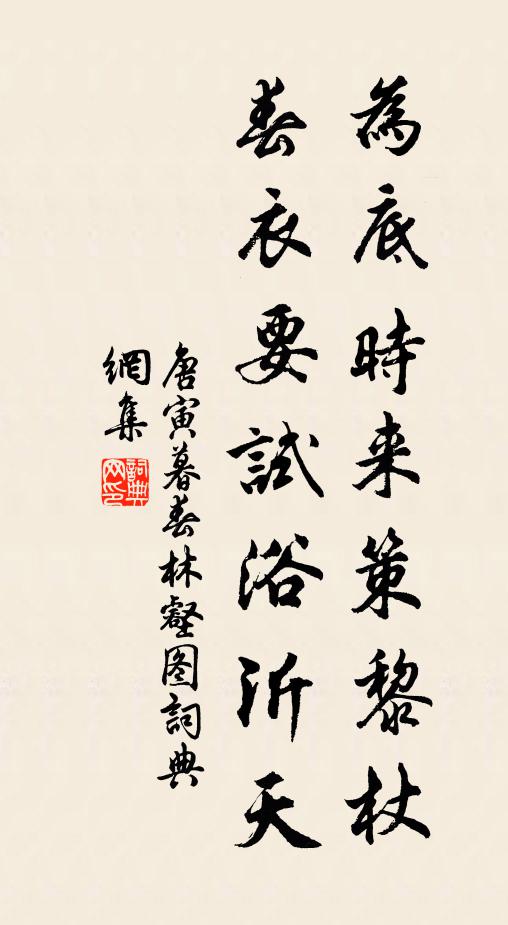 為底時来策黎杖
春衣要試浴沂天
唐寅暮春林壑图詞典
網集
詞典网印